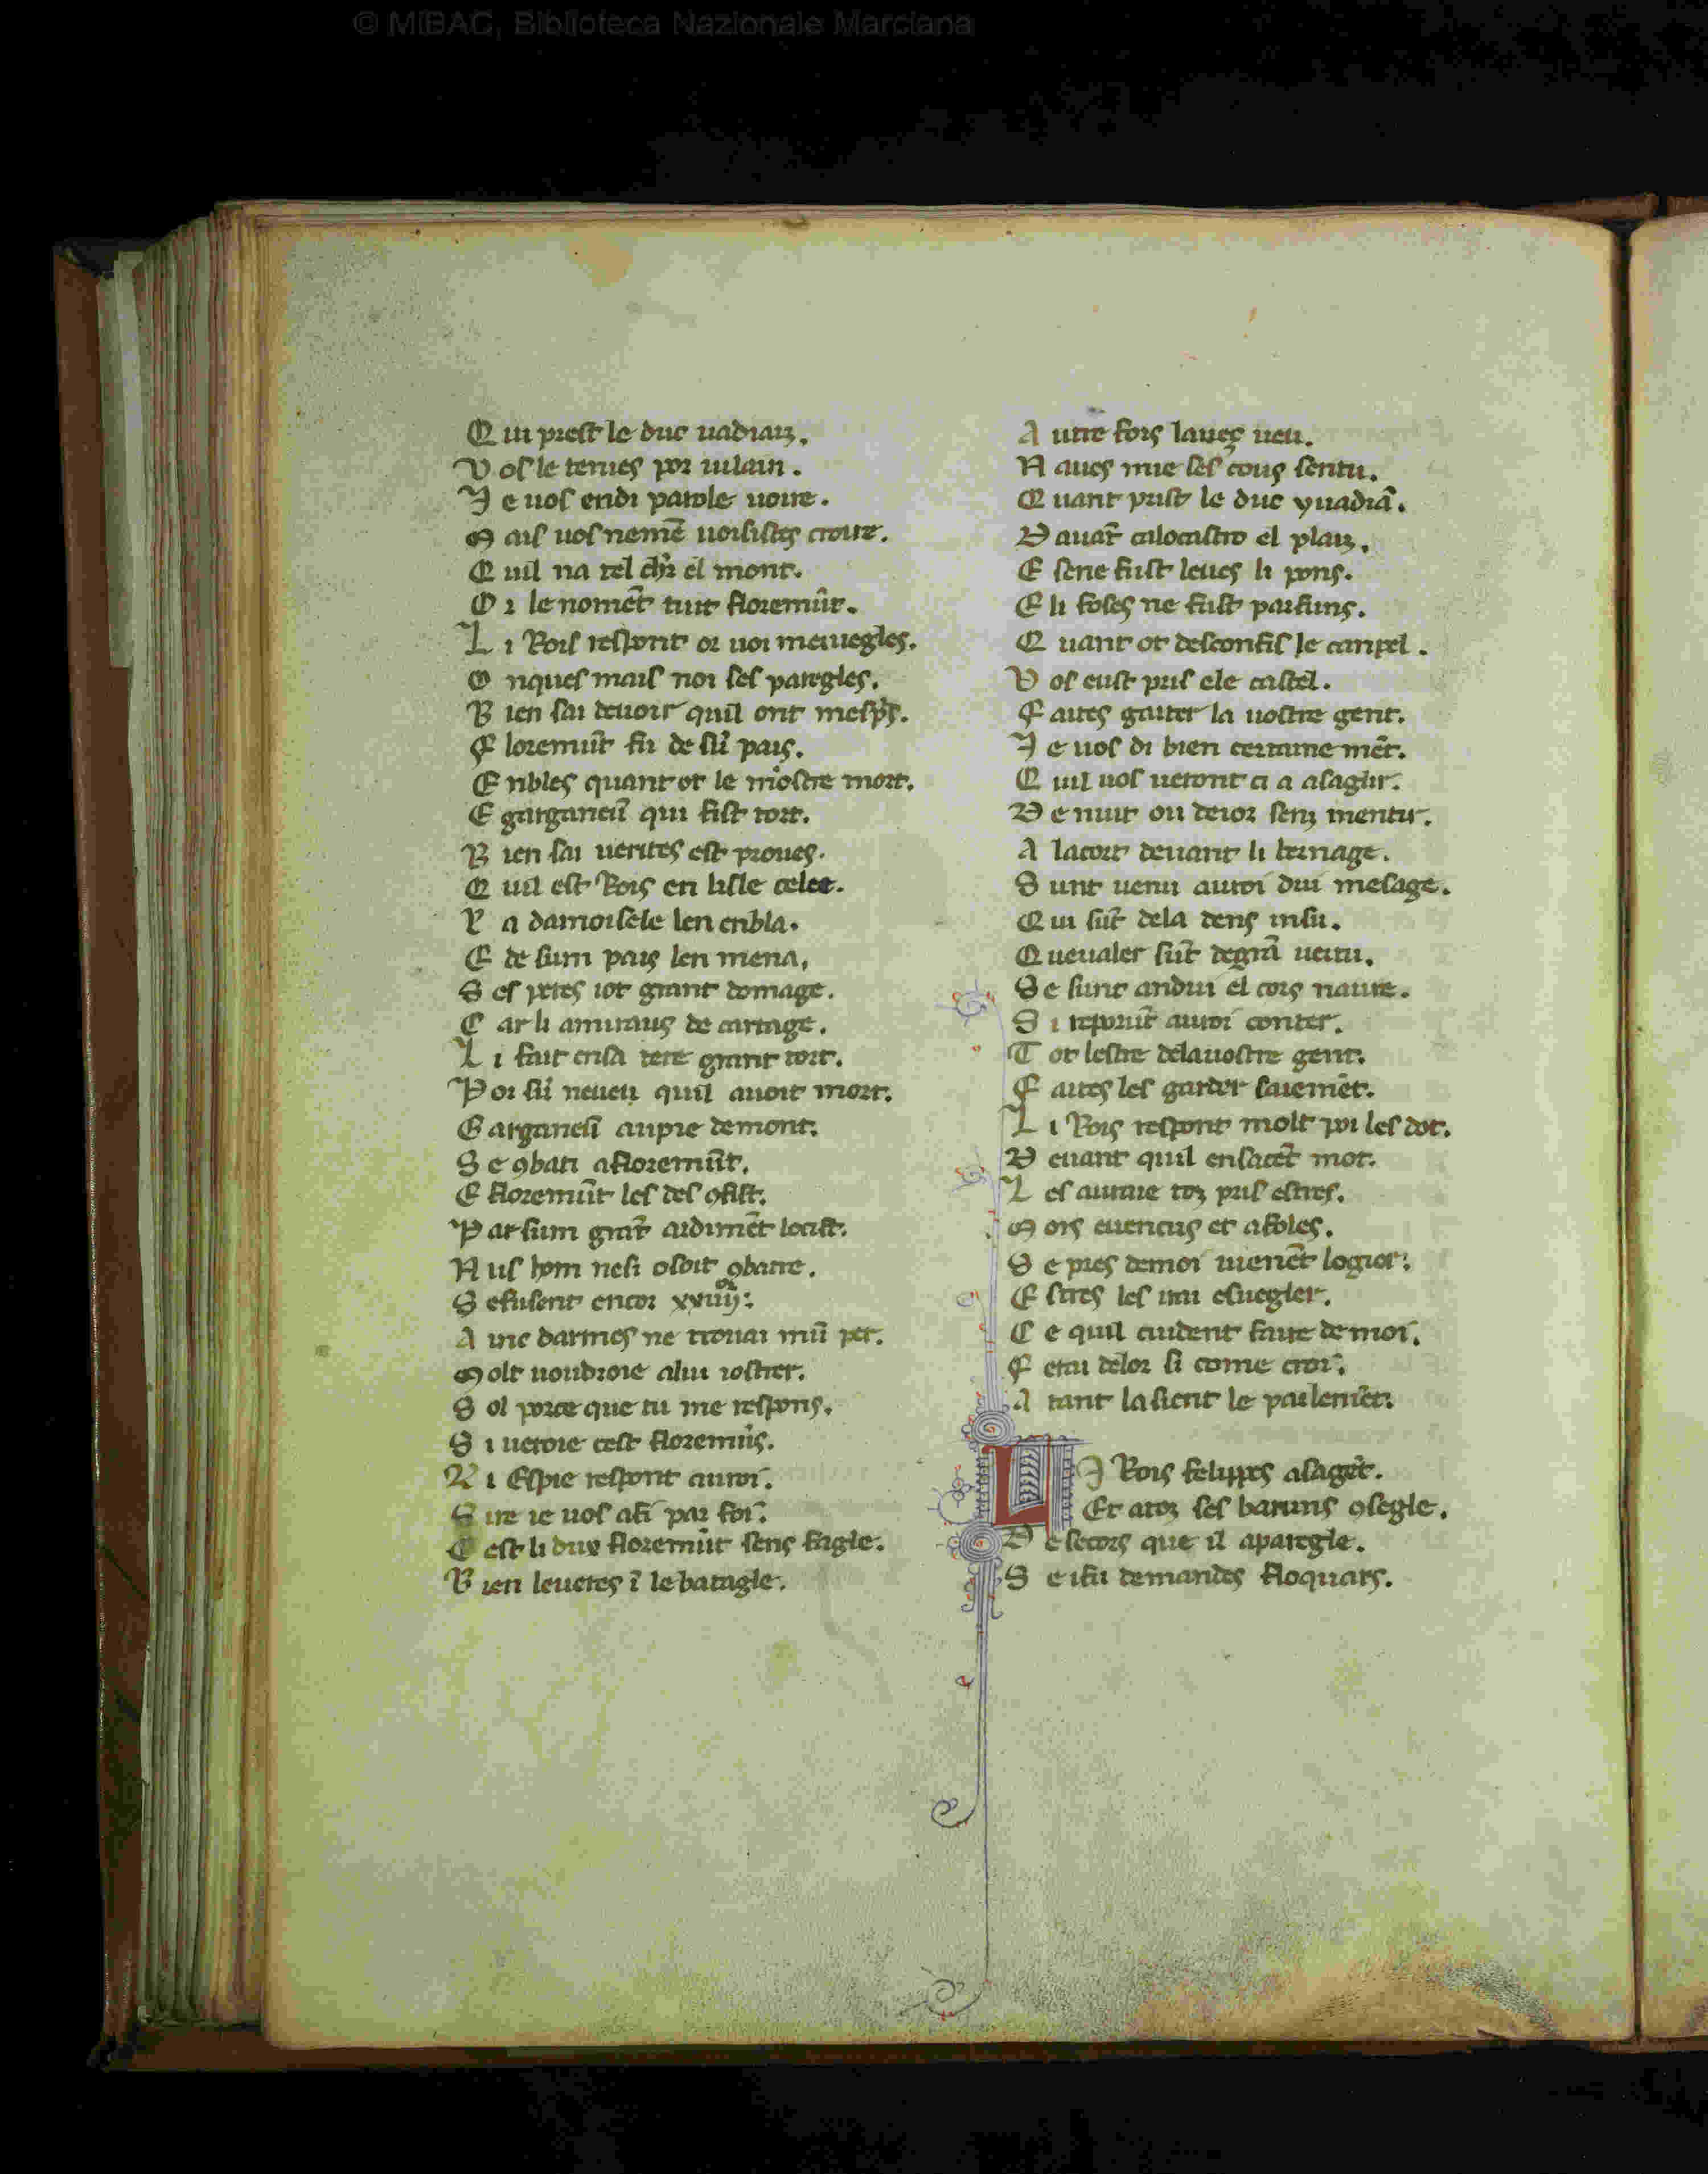 © MiBAC, Biblioteca Nazionale Marciana
Q ui prest le duc uadianz.
V os le tenies por uilain.
J e uos en di parole uoire.
M ais uos ne mē uoisistes croire.
Q uil na tel chr̄ el mont.
O r le nomēt tuit floremūt.
L i Rois respont or uoi meruegles.
O nques mais noi ses paregles.
B ien sai deuoir quil ont mespͥs.
F loremūt fu de sū pais.
E nbles quant ot le mostre mort.
E garganeū qui fist tort.
B ien sai uerites est proues.
Q uil est Rois en lisle celee.
L a damoisele len enbla.
E de sum pais len mena,
S es peres iot grant domage.
C ar li amiraus de cartage.
L i fait en sa tere grant tort.
P or sū neueu quil auoit mort.
G arganeū aupie demont.
S e ꝯbati a floremūt.
E floremūt les des ꝯfist.
P ar sum grāt ardimēt locist.
N us hom nesi osoit ꝯbatre.
S e fusent encor xxiiij:
A me darmes ne trouai mū per.
M olt uoudroie alui iostrer.
S ol por ce que tu me respons.
S i ueroie cest floremūs.
L i Espie respont au roi.
S ire ie uos afi par foi.
C est li dux floremūt sens fagle.
B ien leueres ī le batagle.
A utre fois laues ueu.
N aues mie ses cous sentu.
Q uant prist le duc ꝯuadiā.
D auāt calocastro el planz.
E sene fust leues li pons.
E li foses ne fust parfuns.
Q uant ot desconfis le canpel.
V os eust pris ele castel.
F aites gaiter la uostre gent.
J e uos di bien certaine mēt.
Q uil uos ueront ci a asaglir.
D e nuit ou de ior senz mentir.
A la cort deuant li bernage.
S unt uenu au roi dui mesage.
Q ui sūt dela dens insu.
Q ueualer sūt de grā uertu.
S e sunt andui el cors naure.
S i reponūt au roi conter.
T ot lestre de la uostre gent.
F aites les garder saiemēt.
L i Rois respont molt poi les dot.
D euant quil en sacēt mot.
L es aurare toz pris estres.
M ors euencus et afoles.
S e pres de moi uienēt logier:
E stres les irai esuegler.
C e quil cuident faire de moi.
F erai delor si come croi.
A tant lasient le parlemēt.
L J Rois felippes asagēt.
Et a toz ses baruns ꝯsegle.
D e secors que il aparegle.
S e ifu demandes floquars.